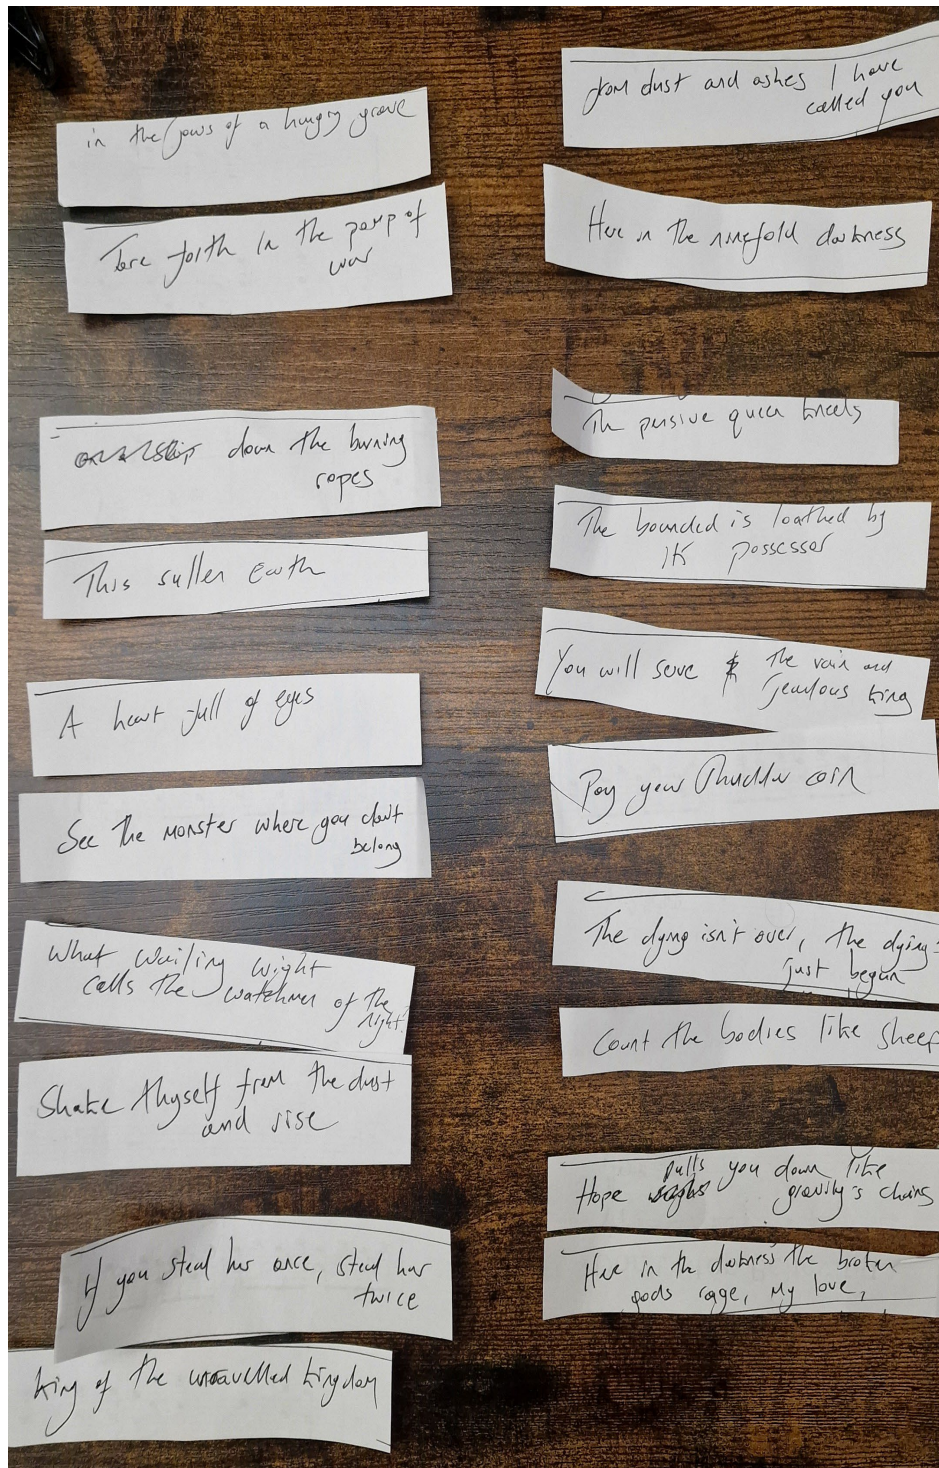 in the jaws of a hungry grave
Tore forth in the pomp of
war
down the burning
ropes
This sullen earth
A heart full of eyes
See the monster where you don't
belong
What wailing wight
calls the watchmen of the
night?
Shake thyself from the dust
and rise
If you steal her once, steal her
twice
King of the unravelled kingdom
from dust and ashes I have
called you
Here in the ninefold darkness
The pensive queen kneels
The bounded is loathed by
its possessor
You will serve the vain and
jealous king
Pay your coin
The dying isn't over, the dying
just begun
Count the bodies like sheep
pulls you down like
Hope gravity's chains
Here in the darkness the broken
gods rage, my love,